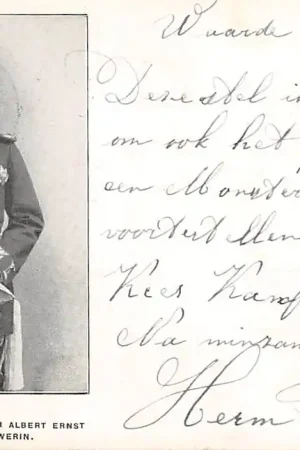 Waarde
Deze stel i
om ook het
een Monster
voortert Men
Kees Kamp
Na minzam
Herm
H ALBERT ERNST
WERIN.